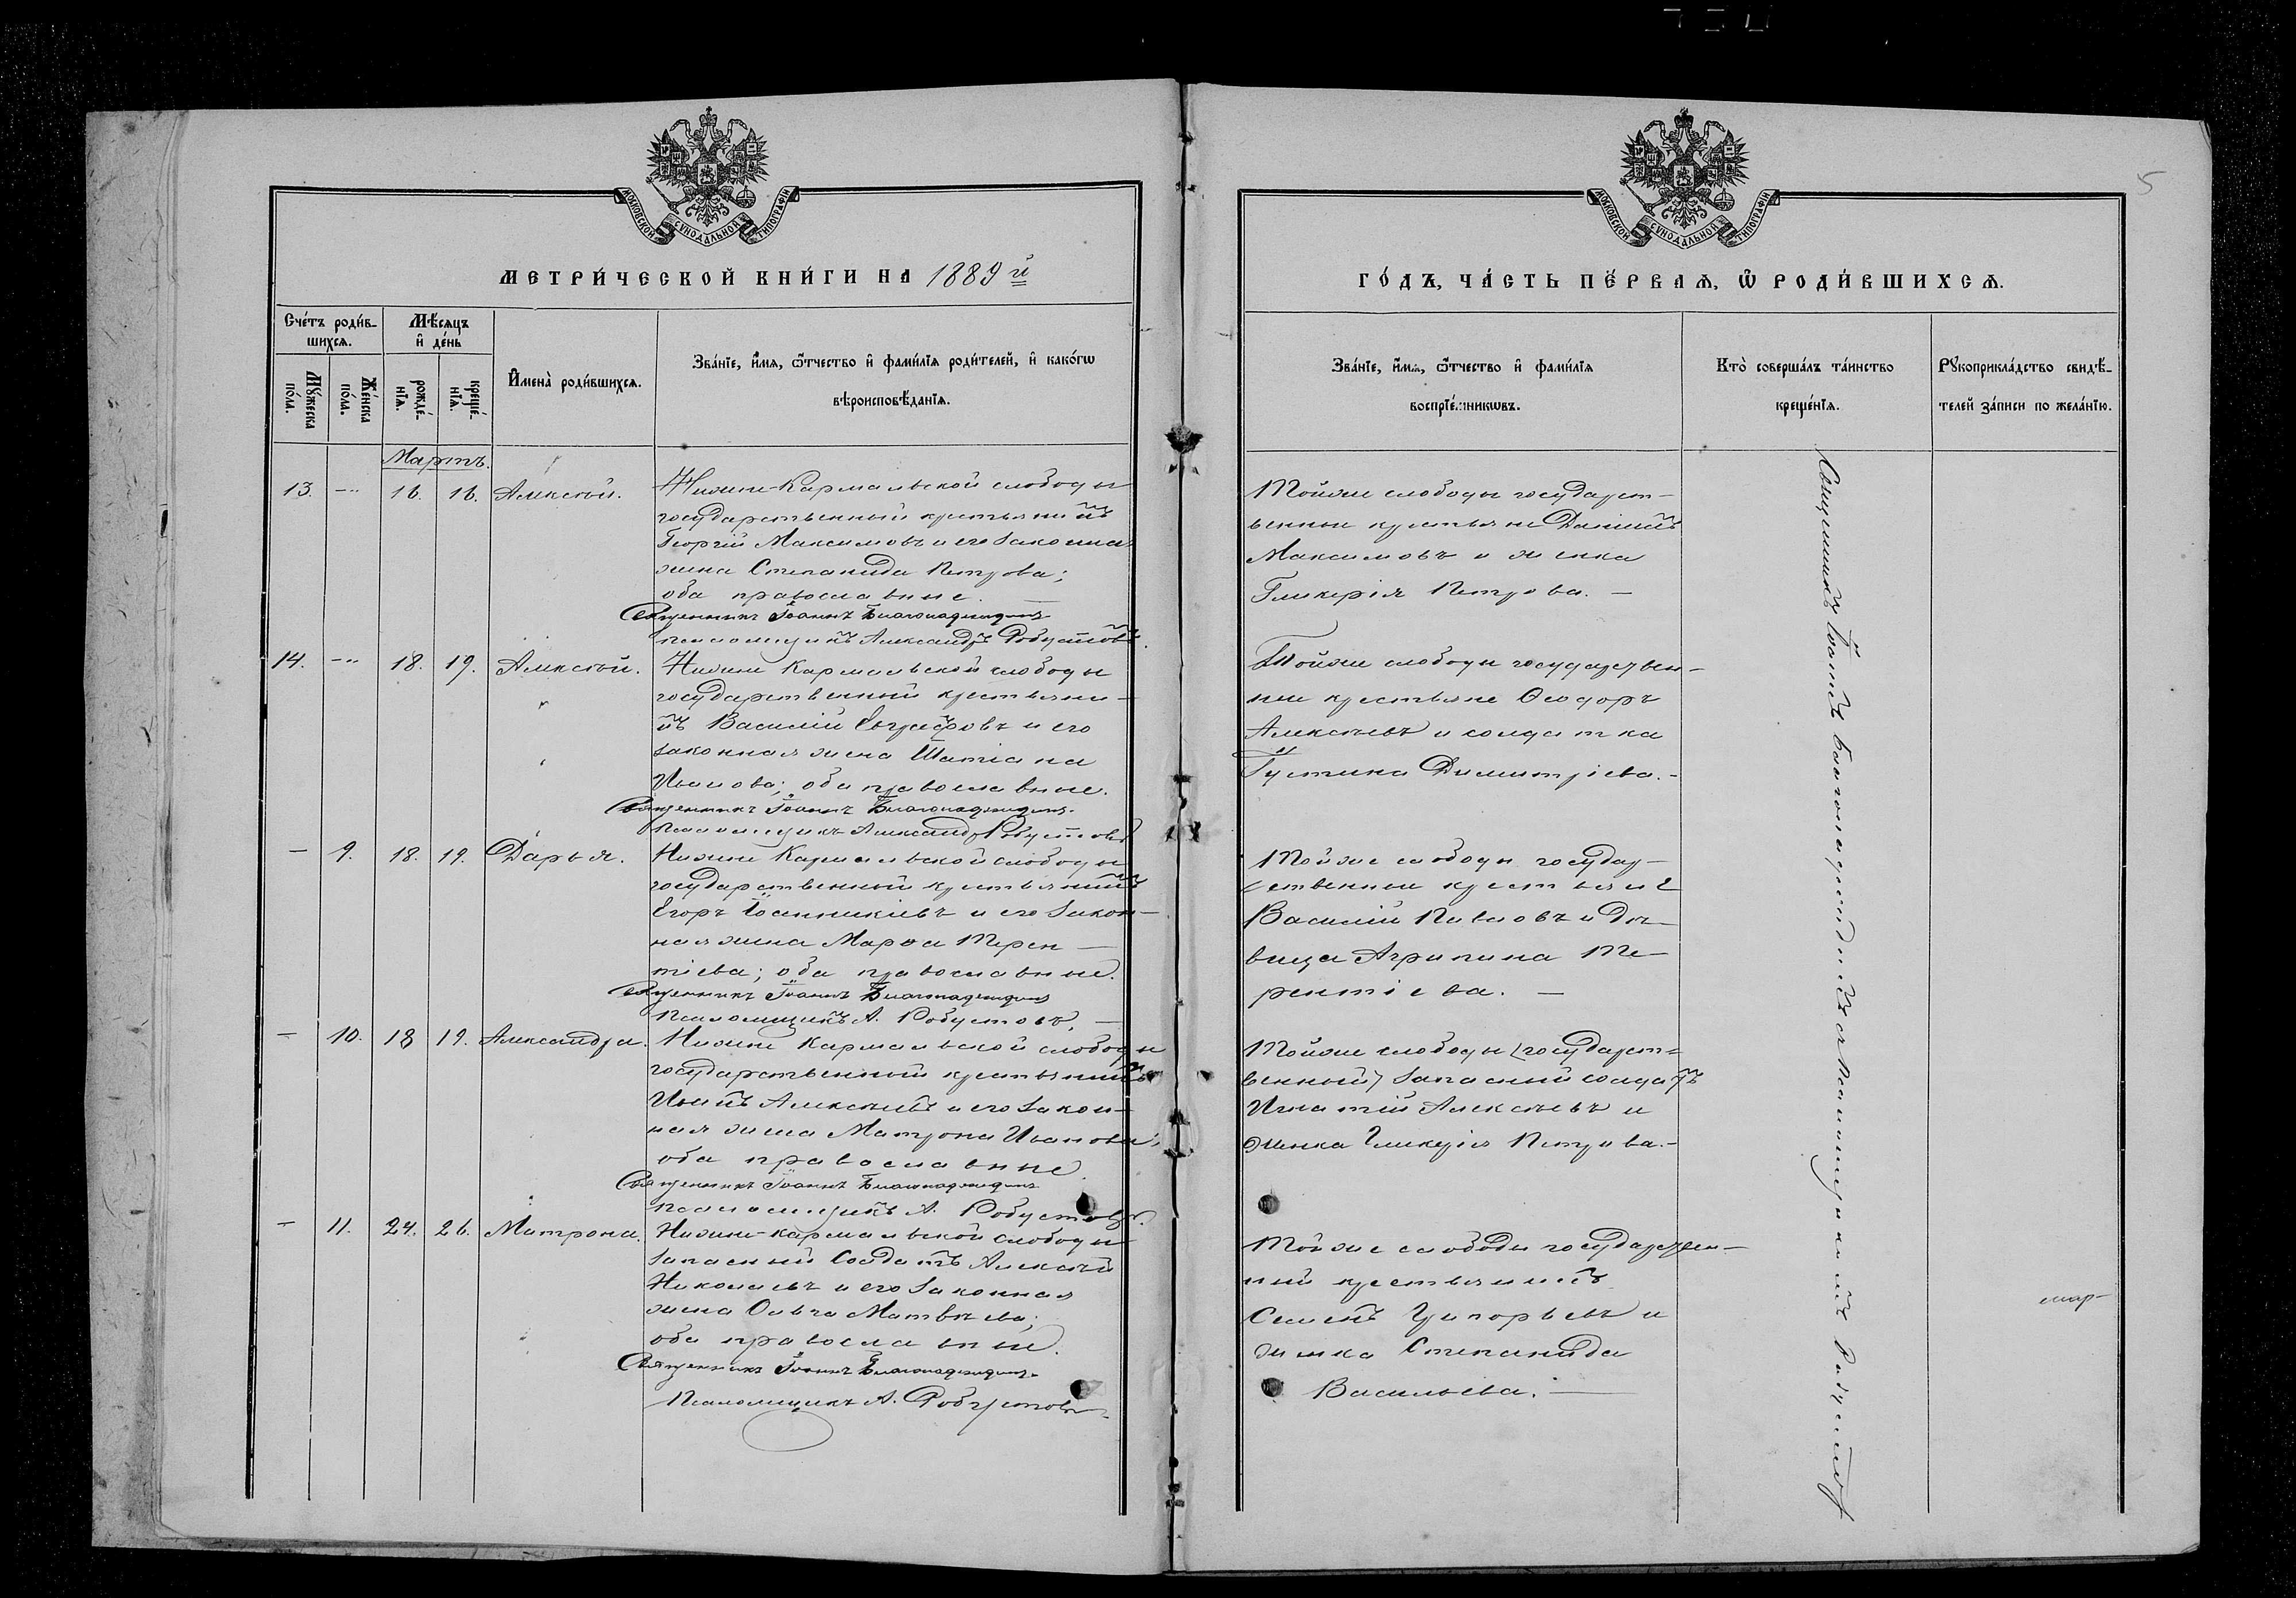 МОСКОВСКОЙ СУНОДАЛЬНОЙ ТИПОГРАФІИ
МЕТРИ́ЧЕСКОЙ КНИ́ГИ НА 1889 й
Счéтъ роди́в-
шихсѧ.
Мꙋ́жеска
по́ла.
Же́нска
по́ла.
Мѣ́сѧцъ
и҆ де́нь
рожде́-
нїѧ.
креще́-
нїѧ.
И҆мена̀ роди́вшихсѧ.
Зва́нїе, и҆́мѧ, ѻ҆́тчество и҆ фами́лїѧ роди́телей, и҆ како́гѡ
вѣроисповѣ́данїѧ.
Мартъ.
13. — 16. 16. Алексѣй.
Нижне-Кармальской слободы
государственный крестьянинъ
Георгій Максимовъ и его законная
жена Степанида Петрова;
оба православные.
Священникъ Іоаннъ Благонадеждинъ
псаломщикъ Александръ Робустовъ.
14. — 18. 19. Алексѣй.
Нижне Кармальской слободы
государственный крестьяни-
нъ Василій Евграфовъ и его
законная жена Татіана
Иванова; оба православные.
Священникъ Іоаннъ Благонадеждинъ.
Псаломщикъ Александръ Робустовъ
— 9. 18. 19. Дарья.
Нижне Кармальской слободы
государственный крестьянинъ
Егоръ Іоанникіевъ и его закон-
ная жена Марѳа Терен-
тіева; оба православные.
Священникъ Іоаннъ Благонадеждинъ
Псаломщикъ А. Робустовъ.
— 10. 18 19. Александра.
Нижне Кармальской слободы
государственный крестьянинъ
Иванъ Алексѣевъ и его закон-
ная жена Матрона Иванова;
оба православные.
Священникъ Іоаннъ Благонадеждинъ
Псаломщикъ А. Робустовъ.
— 11. 24. 26. Матрона.
Нижне-кармальской слободы
запасный Солдатъ Алексѣй
Николаевъ и его законная
жена Ольга Матвѣева;
оба православные.
Священникъ Іоаннъ Благонадеждинъ.
Псаломщикъ А. Робустовъ
5
МОСКОВСКОЙ СУНОДАЛЬНОЙ ТИПОГРАФІИ
ГО́ДЪ, ЧА́СТЬ ПЕ́РВАѦ, Ѽ РОДИ́ВШИХСѦ.
Зва́нїе, и҆́мѧ, ѻ҆́тчество и҆ фами́лїѧ
воспрїе́мникѡвъ.
Кто̀ соверша́лъ та́инство
креще́нїѧ.
Рꙋкоприкла́дство свидѣ́-
телей за́писи по жела́нїю.
Тойже слободы государст-
венные крестьяне Даніилъ
Максимовъ и женка
Гликерія Петрова. —
Тойже слободы государствен-
ные крестьяне Ѳеодоръ
Алексѣевъ и солдатка
Іустина Димитріева. -
Тойже слободы государ-
ственные крестьяне
Василій Павловъ и дѣ-
вица Агрипина Те-
рентіева. —
Тойже слободы (государст-
венный) запасный солдатъ
Игнатій Алексѣевъ и
женка Гликерія Петрова. -
Тойже слободы государствен-
ный крестьянинъ
Семенъ Григорьевъ и
женка Степанида
Васильева. —
Священникъ Іоаннъ Благонадеждинъ съ Псаломщикомъ Робустовымъ